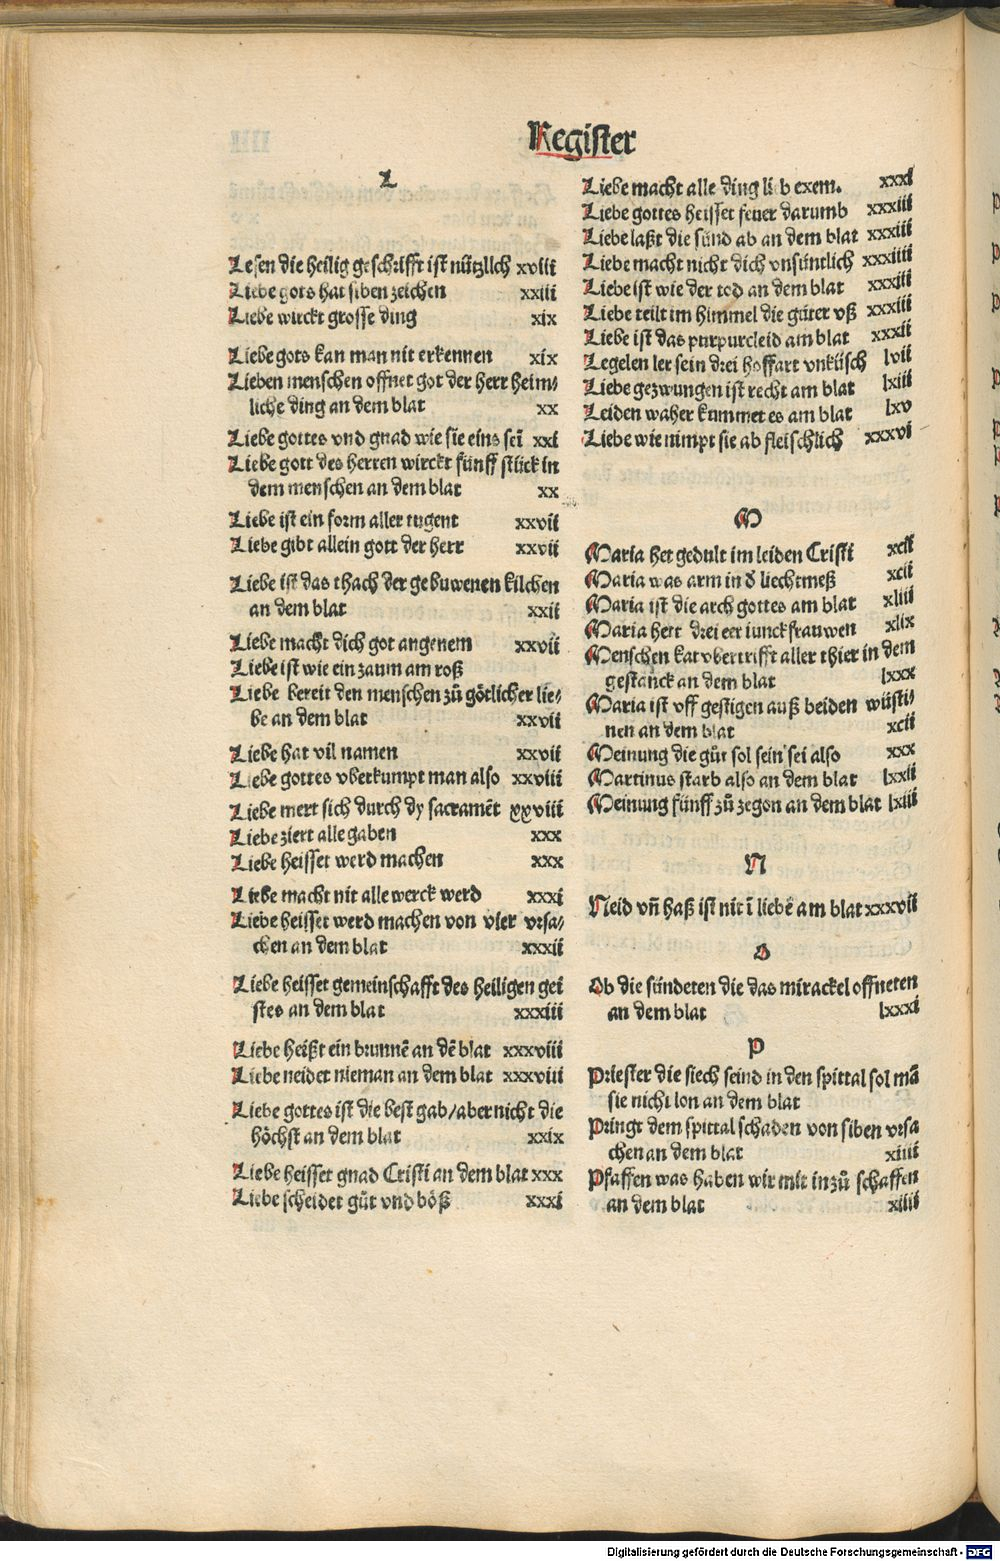 Register
L
Lesen die heilig geschrifft ist nützlich xviii
Liebe gots hat siben zeichen xxiii
Liebe wirckt grosse ding xix
Liebe gots kan man nit erkennen xix
Lieben menschen offnet got der herr heim⸗
liche ding an dem blat xx
Liebe gottes vnd gnad wie sie eins seī xxi
Liebe gott des herren wirckt fünff stück in
dem menschen an dem blat xx
Liebe ist ein form aller tugent xxvii
Liebe gibt allein gott der herr xxvii
Liebe ist das thach der gebuwenen kilchen
an dem blat xxii
Liebe macht dich got angenem xxvii
Liebe ist wie ein zaum am roß
Liebe bereit den menschen zů götlicher lie⸗
be an dem blat xxvii
Liebe hat vil namen xxvii
Liebe gottes vberkumpt man also xxviii
Liebe mert sich durch dy sacramēt xxviii
Liebe ziert alle gaben xxx
Liebe heisset werd machen xxx
Liebe macht nit alle werck werd xxxi
Liebe heisset werd machen von vier vrsa⸗
chen an dem blat xxxii
Liebe heisset gemeinschafft des heiligen gei
stes an dem blat xxxiii
Liebe heißt ein brunnē an dē blat xxxviii
Liebe neidet nieman an dem blat xxxviii
Liebe gottes ist die best gab/aber nicht die
höchst an dem blat xxix
Liebe heisset gnad Cristi an dem blat xxx
Liebe scheidet gůt vnd böß xxxi
Liebe macht alle ding lieb exem. xxxi
Liebe gottes heisset feuer darumb xxxiii
Liebe laßt die sünd ab an dem blat xxxiii
Liebe macht nicht dich vnsüntlich xxxiiii
Liebe ist wie der tod an dem blat xxxiii
Liebe teilt im himmel die güter vß xxxiii
Liebe ist das purpurcleid am blat xxxii
Legelen ler sein drei hoffart vnküsch lvii
Liebe gezwungen ist recht am blat lxiii
Leiden waher kummet es am blat lxv
Liebe wie nimpt sie ab fleischlich xxxvi
M
Maria het gedult im leiden Cristi xcii
Maria was arm in d̕ liechtmeß xcii
Maria ist die arch gottes am blat xliii
Maria hett drei eer iunckfrauwen xlix
Menschen kat vbertrifft aller thier in dem
gestanck an dem blat lxxx
Maria ist vff gestigen auß beiden wüsti⸗
nen an dem blat xcii
Meinung die gůt sol sein sei also xxx
Martinus starb also an dem blat lxxii
Meinung fünff zů zegon an dem blat lxiii
N
Neid vn̄ haß ist nit ī liebē am blat xxxvii
O
Ob die sündeten die das mirackel offneten
an dem blat lxxxi
P
Priester die siech seind in den spittal sol mā
sie nicht lon an dem blat
Pringt dem spittal schaden von siben vrsa
chen an dem blat xiiii
Pfaffen was haben wir mit inzů schaffen
an dem blat xliii
Digitalisierung gefördert durch die Deutsche Forschungsgemeinschaft - DFG